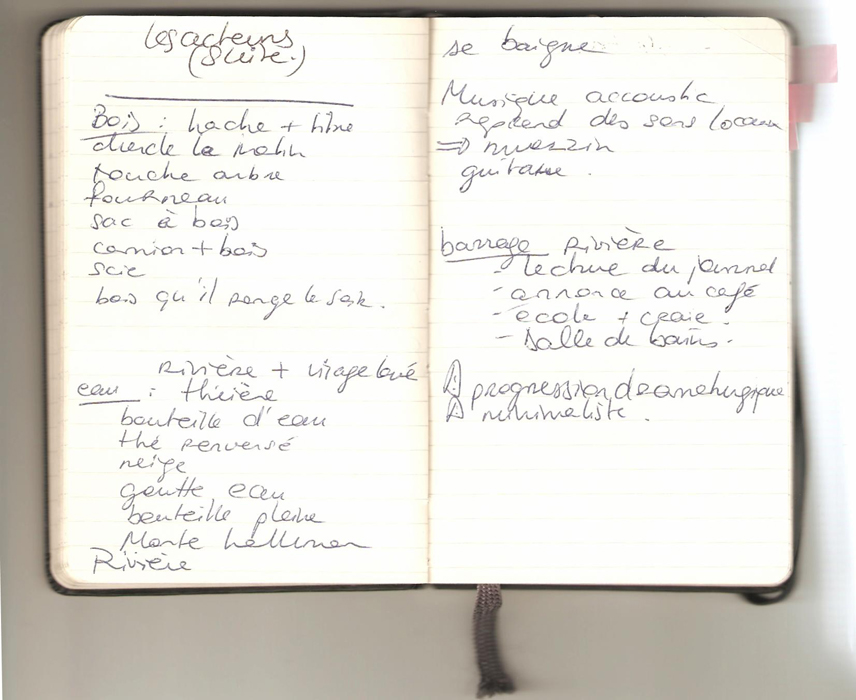 les acteurs
(suite.)
Bois : hache + 
cherche le matin
touche arbre
fourneau
sac à bois
camion + bois
scie
bois qu'il range le soir.
Rivière + visage lavé
eau : théière
bouteille d'eau
thé renversé
neige
goutte eau
bouteille pleine
Monte
Rivière
se baigne
Musique accoustic
Reprend des sons locaux
=> muezzin
guitare .
barrage Rivière
- lecture du journal
- annonce au café
- école + craie.
- salle de bains.
progression dramaturgique
minimaliste .